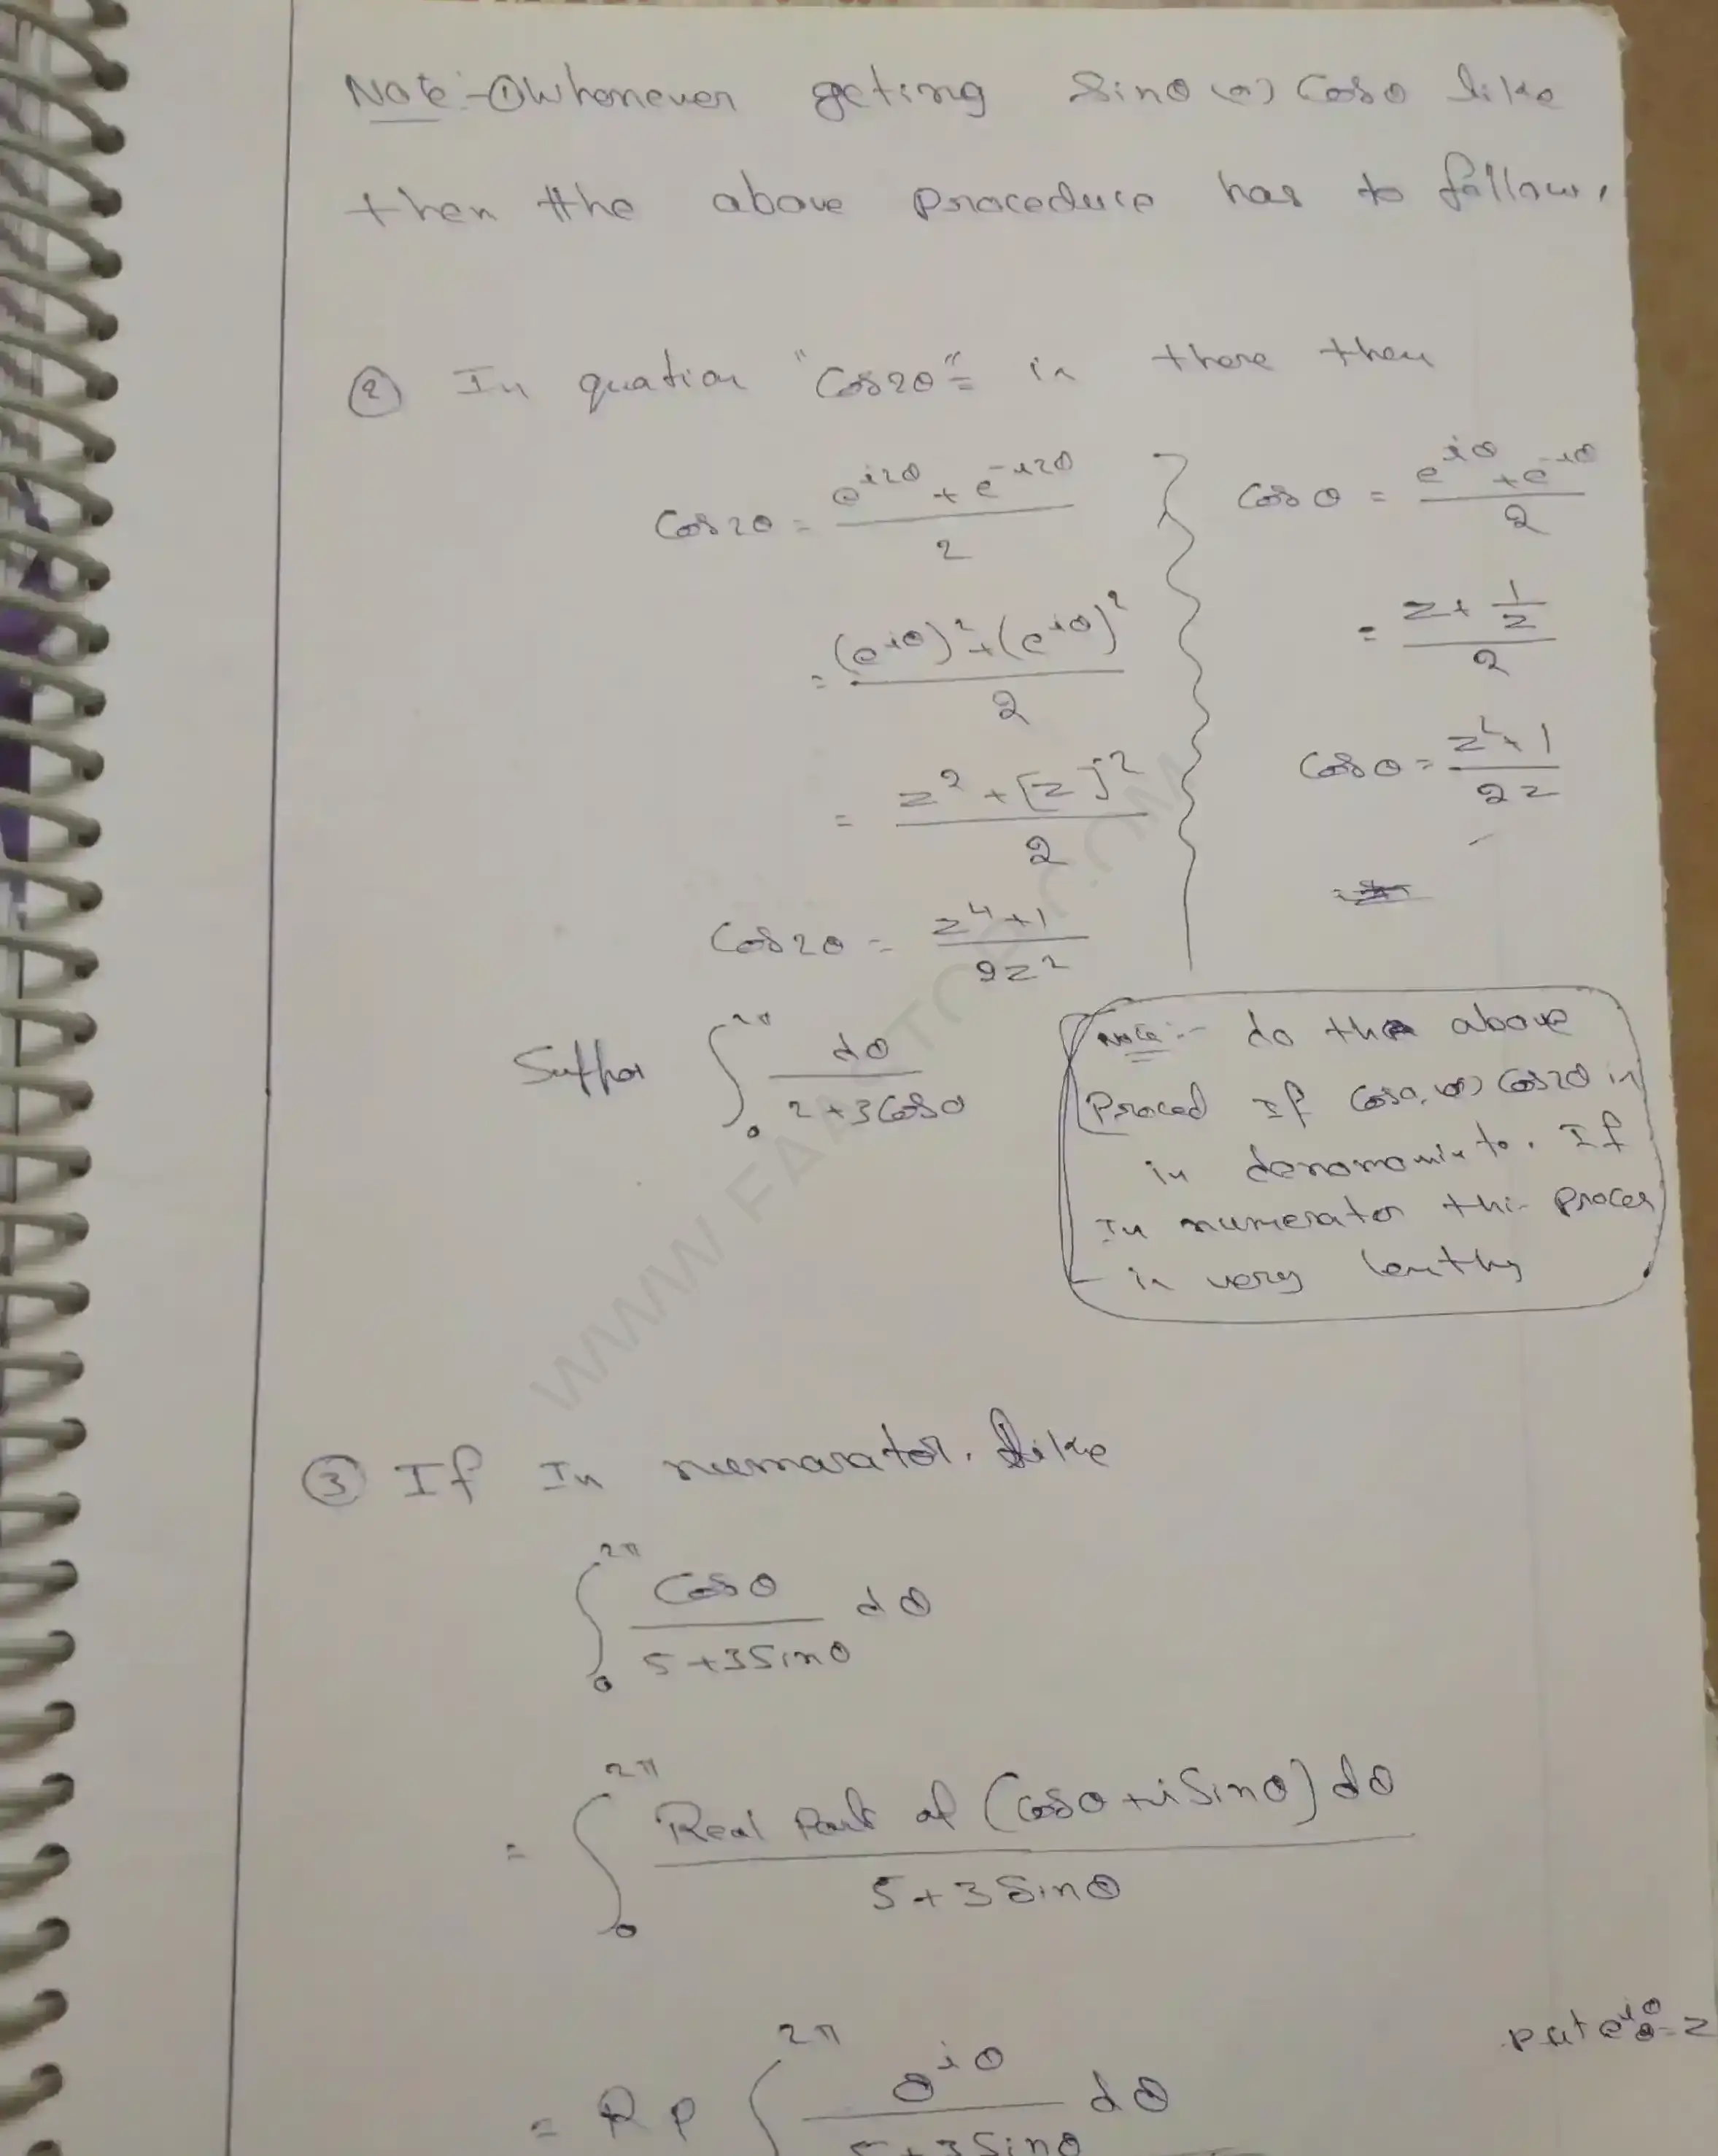 Note:- ① Whenever geting Sinθ (or) Cosθ like
then the above Proceduce has to follow.
② In quation "Cos2θ" is there then
Cos2θ = (e^{i2θ} + e^{-i2θ})/2
= ((e^{iθ})^2 + (e^{iθ})^2)/2
= (z^2 + [z]^2)/2
Cos2θ = (z^4+1)/(2z^2)
Cosθ = (e^{iθ} + e^{-iθ})/2
= (z + 1/z)/2
Cosθ = (z^2+1)/(2z)
∫_0 dθ/(2+3Cosθ)
Note:- do the above
Proced If Cosθ, (or) Cos2θ is
in If
In numerator this Proces
is very lenthy
③ If In numarator. like
∫_0^{2π} Cosθ/(5+3Sinθ) dθ
= ∫_0^{2π} Real Part of (Cosθ+iSinθ) dθ/(5+3Sinθ)
put e^{iθ}=z
= R P ∫^{2π} e^{iθ}/(5+3Sinθ) dθ
WWW.FAA